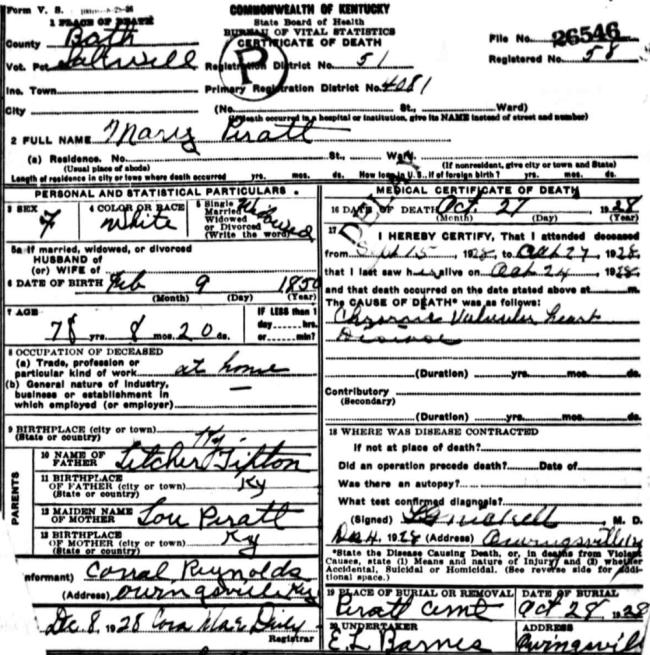 Form V. S.
COMMONWEALTH OF KENTUCKY
State Board of Health
BUREAU OF VITAL STATISTICS
CERTIFICATE OF DEATH
1 PLACE OF DEATH
County Bath
Vot. Pct Saltwell
Registration District No. 51
File No. 26546
Registered No. 58
Inc. Town
Primary Registration District No. 4081
City (No. St., Ward)
(If death occurred in a hospital or institution, give its NAME instead of street and number)
2 FULL NAME Mary Piratt
(a) Residence. No. St., Ward.
(Usual place of abode) (If nonresident, give city or town and State)
Length of residence in city or town where death occurred yrs. mos. ds. How long in U.S., if of foreign birth? yrs. mos. ds.
PERSONAL AND STATISTICAL PARTICULARS
3 SEX F
4 COLOR OR RACE White
5 Single Married Widowed or Divorced (Write the word) Widowed
5a If married, widowed, or divorced
HUSBAND of
(or) WIFE of
6 DATE OF BIRTH Feb 9 1850
(Month) (Day) (Year)
7 AGE
78 yrs. 8 mos. 20 ds.
IF LESS than 1
day hrs.
or min?
8 OCCUPATION OF DECEASED
(a) Trade, profession or
particular kind of work at home
(b) General nature of industry,
business or establishment in
which employed (or employer)
9 BIRTHPLACE (city or town)
(State or country) Ky.
PARENTS
10 NAME OF
FATHER Letcher Tipton
11 BIRTHPLACE
OF FATHER (city or town) Ky
(State or country)
12 MAIDEN NAME
OF MOTHER Lou Piratt
13 BIRTHPLACE
OF MOTHER Ky
(State or country)
Informant) Corral Reynolds
(Address) Owingsville Ky
Dec 8, 1928 Cora Mae
Registrar
MEDICAL CERTIFICATE OF DEATH
DEL
16 DATE OF DEATH Oct. 27 1928
(Month) (Day) (Year)
17
I HEREBY CERTIFY, That I attended deceased
from Sept 15, 1928, to Oct 27, 1928
that I last saw h alive on Oct 24, 1928
and that death occurred on the date stated above at m.
The CAUSE OF DEATH* was as follows:
Chronic Valvular heart
Disease
(Duration) yrs. mos. ds.
Contributory
(Secondary)
(Duration) yrs. mos. ds.
18 WHERE WAS DISEASE CONTRACTED
If not at place of death?
Did an operation precede death? Date of
Was there an autopsy?
What test confirmed diagnosis?
(Signed) M. D.
Dec 4, 1928 (Address) Owingsville Ky
*State the Disease Causing Death, or, in deaths from Violent
Causes, state (1) Means and nature of Injury and (2) whether
Accidental, Suicidal or Homicidal. (See reverse side for addi-
tional space.)
19 PLACE OF BURIAL OR REMOVAL
Piratt cmt
DATE OF BURIAL
Oct 28, 1928
20 UNDERTAKER
E L Barnes
ADDRESS
Owingsvill